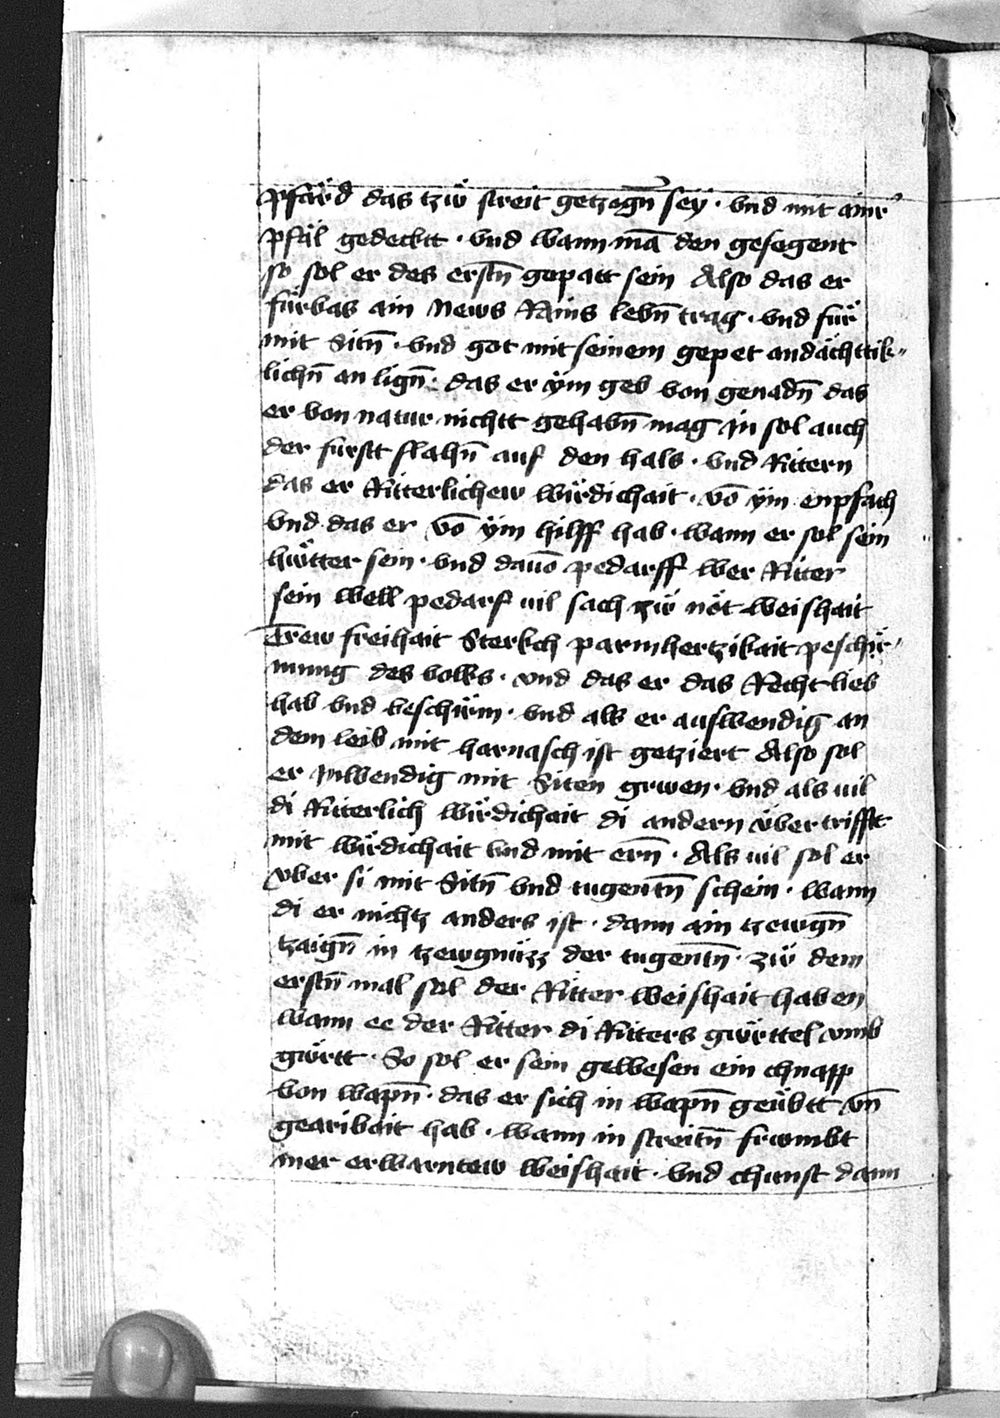 pfärd das tzü streit getzogn̄ sey · vnd mit ainr
pfäl gedecktt · vnd wann mā den gesegent
so sol er des erstn̄ gepatt sein Also das er
fürbas ain news Rains lebn̄ trag · vnd für
mit Sitn̄ · vnd got mit seinem gepet andächttik„
lichn̄ an lign̄ : das er ÿm geb von genadn̄ das
er von natur nichtt gehabn̄ mag Jn sol auch
der furstt slahn̄ auf den hals · vnd Rittern
das er Ritterlichew würdichait · vō ÿm enpfach
vnd das er vō ÿm hilff hab · wann er sol sein
hütter sein · vnd dauō pedarff wer Ritter
sein well pedarf uil sach zü nöt weishait
Trew freihait Sterkch parmhertzikait peschir„
mung des volks · vnd das er das Recht lieb
hab vnd beschirm · vnd als er auswendig an
dem leib mit harnasch ist getziert Also sol
er Jnwendig mit Siten grwen · vnd als uil
di Ritterlich würdichait di andern übertrifftt
mit würdichait vnd mit ern̄ · Als uil sol er
vber si mit Sitn̄ vnd tugentn̄ schein · wann
di er nichtz anders ist · dann ain tzewgn̄
tzaign̄ in tzewgnüzz der tugentn̄ · zü dem
erstn̄ mal sol der Ritter weishait haben
wann ee der Ritter di Ritters gürttel vmb
gürtt · So sol er sein gewesen ein chnapp
von wapn̄ · das er sich in wapn̄ geübtt vn̄
gearibait hab · wann in streitn̄ frwmbt
mer erwarntew weishait · vnd chunst dann